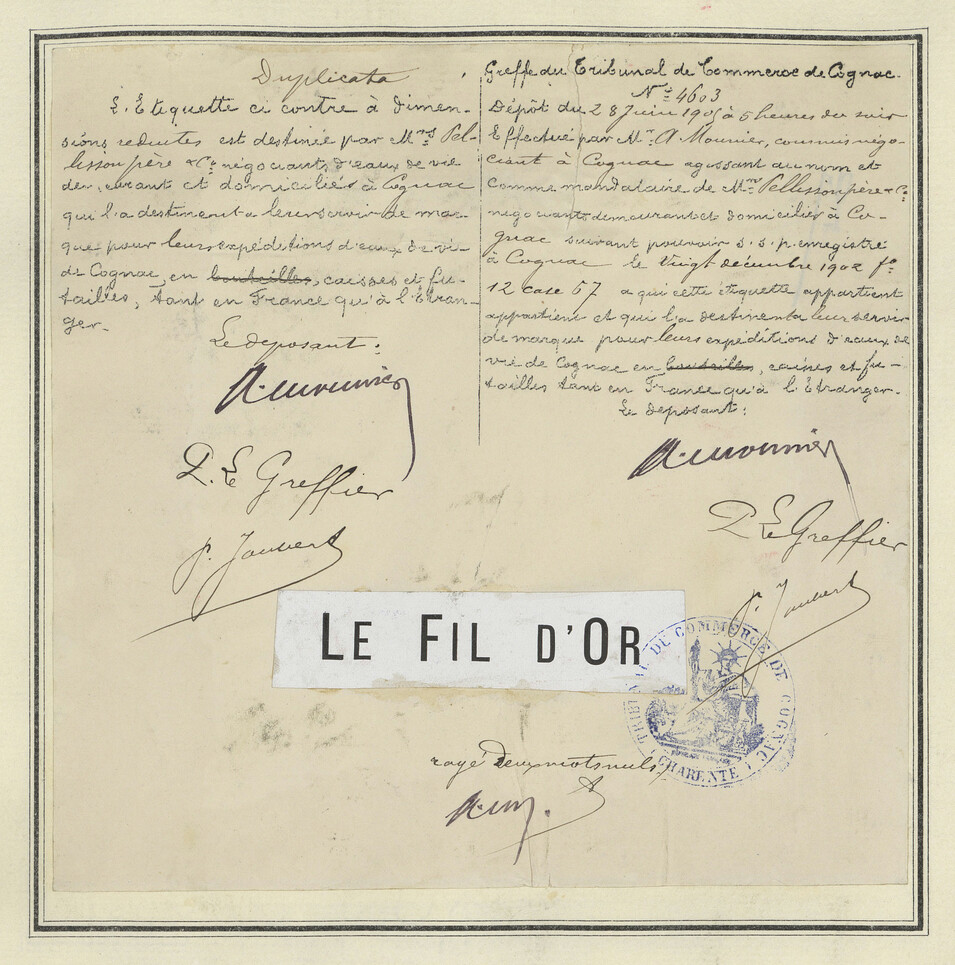 Duplicata
L'Etiquette ci contre à dimen-
sions reduites est destinée par Mrs Pel-
lisson père & Co négociants d'eaux de vie
demeurant et domiciliés à Cognac
qui l'a destinent a leur servir de mar-
que pour leurs expéditions d'eaux de vie
de Cognac, en bouteilles, caisses et fu-
tailles, tant en France qu'à l'Etran-
ger.
Le deposant:
A. Mounier
P. Le Greffier
P. Joubert
Greffe du Tribunal de Commerce de Cognac.
No 4603
Dépôt du 28 Juin 1905 à 5 heures du soir
Effectué par Mr A. Mounier, commis négo-
ciant à Cognac agissant au nom et
comme mandataire de Mrs Pellisson père & Co
négociants demeurant et domiciliés à Co-
gnac suivant pouvoir s.s.p. enregistré
à Cognac le vingt décembre 1902 fo
12 case 67 a qui cette étiquette appartient
appartient et qui l'a destinent a leur servir
de marque pour leurs expéditions d'eaux de
vie de Cognac en bouteilles, caisses et fu-
tailles tant en France qu'à l'Etranger.
Le deposant:
A. Mounier
P. Le Greffier
P. Joubert
LE FIL D'OR
TRIBUNAL DU COMMERCE DE COGNAC
CHARENTE
rayé deux mots nuls